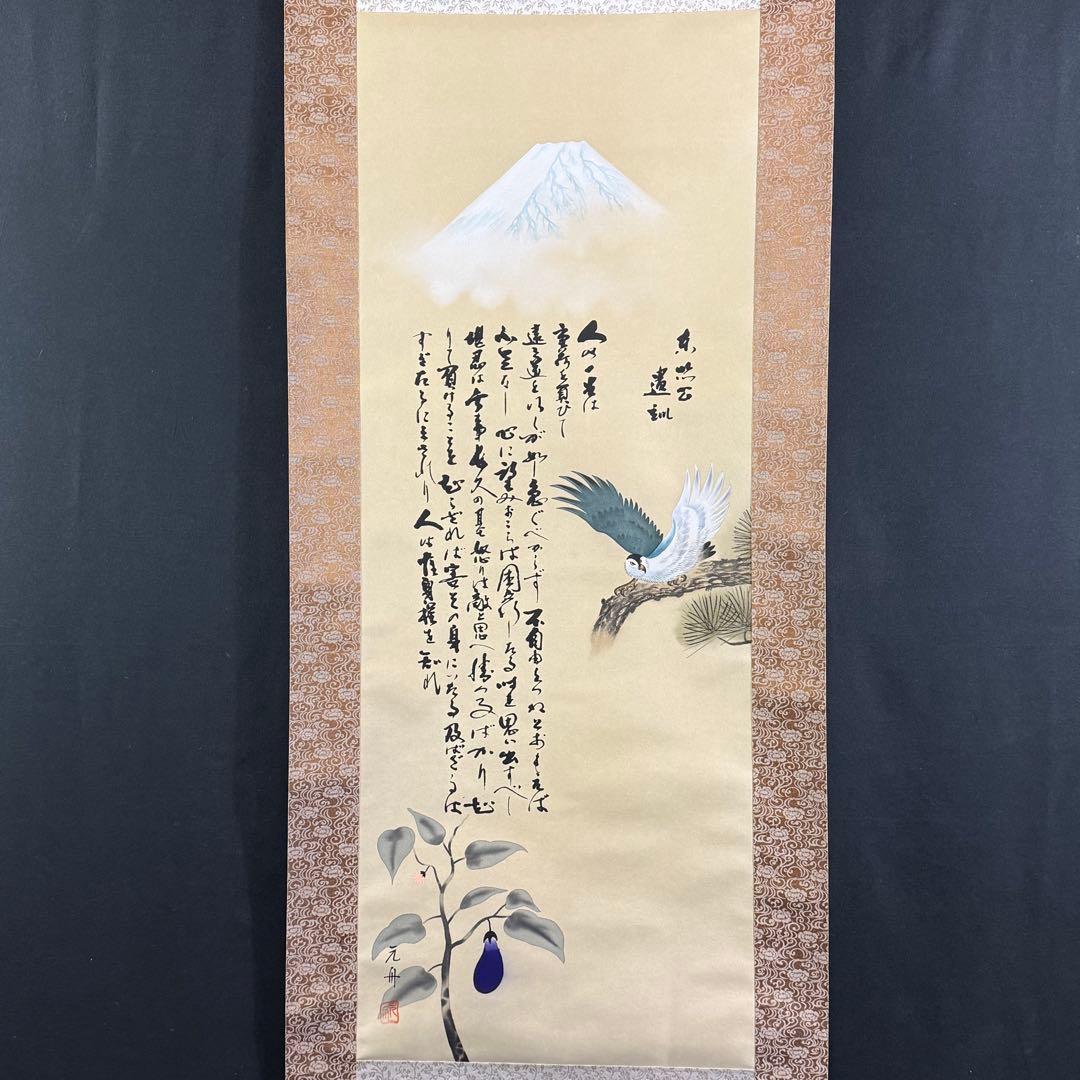 東照公
遺訓
人の一生は
重荷を負ひて
遠き道を行くが如し急ぐべからず 不自由をつねとおもへば
不足なし 心に望みおこらば困窮したる時を思い出すべし
堪忍は無事長久の基怒りは敵と思へ 勝つ事ばかり知
りて負けることを知らざれば害その身にいたる 及ばざるは
すぎたるにまされり 人は唯身の程を知れ
元舟